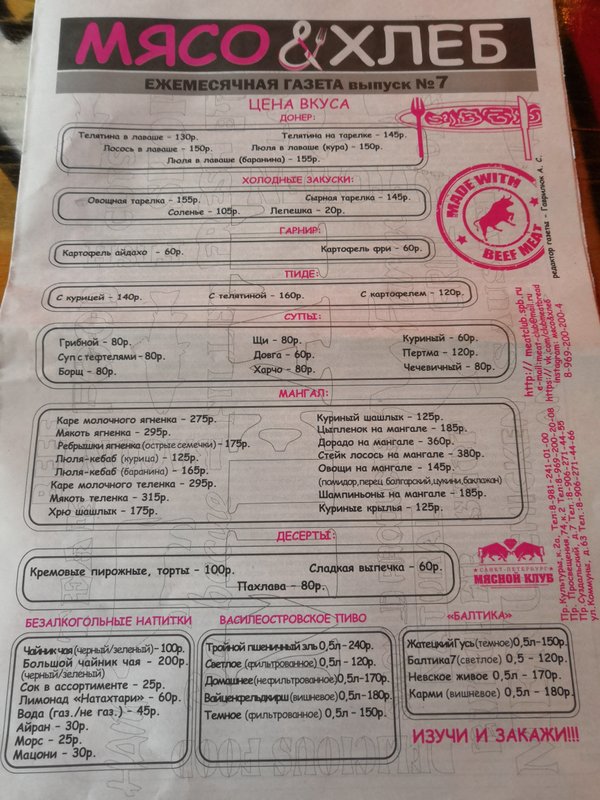 МЯСО & ХЛЕБ
ЕЖЕМЕСЯЧНАЯ ГАЗЕТА выпуск №7
ЦЕНА ВКУСА
ДОНЕР:
Телятина в лаваше - 130р. Телятина на тарелке - 145р.
Лосось в лаваше - 150р. Люля в лаваше (кура) - 150р.
Люля в лаваше (баранина) - 155р.
ХОЛОДНЫЕ ЗАКУСКИ:
Овощная тарелка - 155р. Сырная тарелка - 145р.
Соленье - 105р. Лепешка - 20р.
ГАРНИР:
Картофель айдахо - 60р. Картофель фри - 60р.
ПИДЕ:
С курицей - 140р. С телятиной - 160р. С картофелем - 120р.
СУПЫ:
Грибной - 80р. Щи - 80р. Куриный - 60р.
Суп с тефтелями - 80р. Довга - 60р. Пертма - 120р.
Борщ - 80р. Харчо - 80р. Чечевичный - 80р.
МАНГАЛ:
Каре молочного ягненка - 275р.
Мякоть ягненка - 295р.
Ребрышки ягненка (острые семечки) - 175р.
Люля-кебаб (курица) - 125р.
Люля-кебаб (баранина) - 165р.
Каре молочного теленка - 295р.
Мякоть теленка - 315р.
Хрю шашлык - 175р.
Куриный шашлык - 125р.
Цыпленок на мангале - 185р.
Дорадо на мангале - 360р.
Стейк лосось на мангале - 380р.
Овощи на мангале - 145р.
(помидор,перец болгарский,цукини,баклажан)
Шампиньоны на мангале - 185р.
Куриные крылья - 125р.
ДЕСЕРТЫ:
Кремовые пирожные, торты - 100р. Сладкая выпечка - 60р.
Пахлава - 80р.
БЕЗАЛКОГОЛЬНЫЕ НАПИТКИ
Чайник чая (черный/зеленый) - 100р.
Большой чайник чая - 200р.
(черный/зеленый)
Сок в ассортименте - 25р.
Лимонад «Натахтари» - 60р.
Вода (газ./не газ.) - 45р.
Айран - 30р.
Морс - 25р.
Мацони - 30р.
ВАСИЛЕОСТРОВСКОЕ ПИВО
Тройной пшеничный эль 0,5л - 240р.
Светлое (фильтрованное) 0,5л - 120р.
Домашнее (нефильтрованное) 0,5л - 170р.
Вайценфельдкирш (вишневое) 0,5л - 180р.
Темное (фильтрованное) 0,5л - 150р.
«БАЛТИКА»
Жатецкий Гусь (темное) 0,5л - 150р.
Балтика7 (светлое) 0,5 - 120р.
Невское живое 0,5л - 170р.
Карми (вишневое) 0,5л - 180р.
ИЗУЧИ И ЗАКАЖИ!!!
MADE WITH
BEEF MEAT
редактор газеты - Гаврилюк А. С.
http://meatclub.spb.ru
e-mail:meat-club@mail.ru
https://vk.com/clubmeatbread
instagram: мясо&хлеб
8-969-200-200-4
САНКТ-ПЕТЕРБУРГ
МЯСНОЙ КЛУБ
Пр. Культуры, к.2а, Тел:8-981-241-01-00
Пр. Просвещения,74 к.2 Тел:8-969-200-20-08
Пр.Суздальский, д.7 Тел.:8-906-271-44-55
ул.Коммуны, д.63 Тел.:8-906-271-44-66